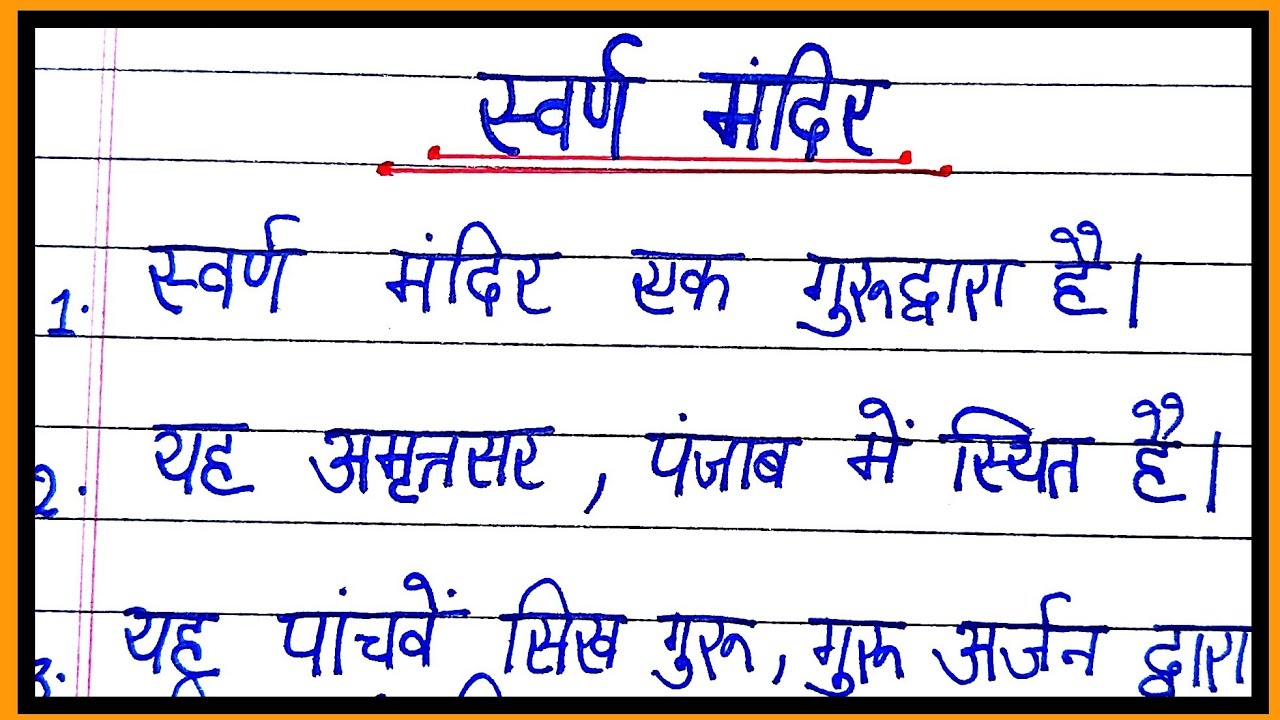 स्वर्ण मंदिर
1. स्वर्ण मंदिर एक गुरुद्वारा है।
2. यह अमृतसर, पंजाब में स्थित है।
3. यह पांचवें सिख गुरु, गुरु अर्जन द्वारा